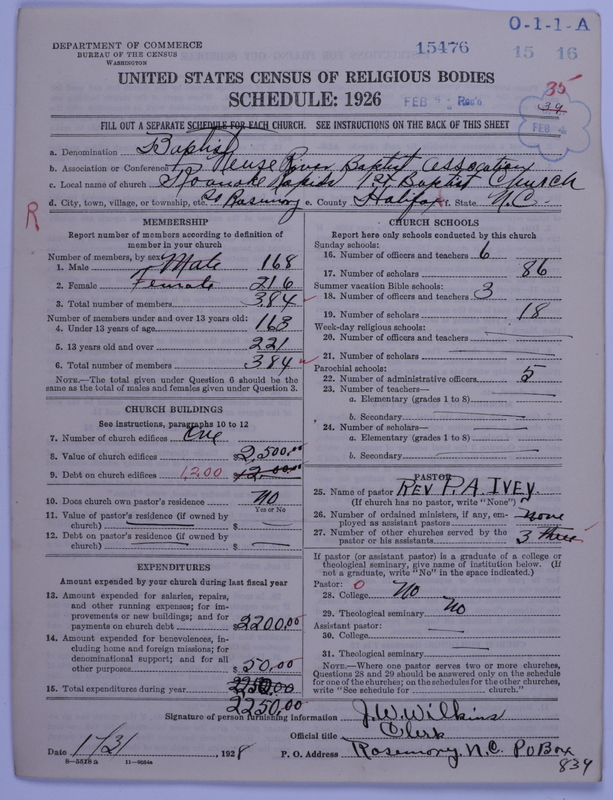 0-1-1-A
DEPARTMENT OF COMMERCE
BUREAU OF THE CENSUS
WASHINGTON
15476
15 16
UNITED STATES CENSUS OF RELIGIOUS BODIES
SCHEDULE: 1926
FEB Rec'd
35
39
FEB 4
FILL OUT A SEPARATE SCHEDULE FOR EACH CHURCH. SEE INSTRUCTIONS ON THE BACK OF THIS SHEET
a. Denomination Baptist
b. Association or Conference Neuse River Baptist Assocation
c. Local name of church Roanoke Rapids 1st Baptist Church
d. City, town, village, or township, etc. So Rosemory e. County Halifax f. State N.C.
R
MEMBERSHIP
Report number of members according to definition of member in your church
Number of members, by sex:
1. Male Male 168
2. Female Female 216
3. Total number of members 384
Number of members under and over 13 years old:
4. Under 13 years of age 163
5. 13 years old and over 221
6. Total number of members 384
NOTE.—The total given under Question 6 should be the same as the total of males and females given under Question 3.
CHURCH BUILDINGS
See instructions, paragraphs 10 to 12
7. Number of church edifices One
8. Value of church edifices $2,500.00
9. Debt on church edifices 1,200 $12.00.00
10. Does church own pastor's residence No
Yes or No
11. Value of pastor's residence (if owned by church) $
12. Debt on pastor's residence (if owned by church) $
EXPENDITURES
Amount expended by your church during last fiscal year
13. Amount expended for salaries, repairs, and other running expenses; for improvements or new buildings; and for payments on church debt $2200.00
14. Amount expended for benevolences, including home and foreign missions; for denominational support; and for all other purposes $50.00
15. Total expenditures during year 2250.00
2250.00
CHURCH SCHOOLS
Report here only schools conducted by this church
Sunday schools:
16. Number of officers and teachers 6
17. Number of scholars 86
Summer vacation Bible schools:
18. Number of officers and teachers 3
19. Number of scholars 18
Week-day religious schools:
20. Number of officers and teachers
21. Number of scholars
Parochial schools:
22. Number of administrative officers 5
23. Number of teachers—
a. Elementary (grades 1 to 8)
b. Secondary
24. Number of scholars—
a. Elementary (grades 1 to 8)
b. Secondary
PASTOR
25. Name of pastor REV P.A. IVEY.
(If church has no pastor, write "None")
26. Number of ordained ministers, if any, employed as assistant pastors none
27. Number of other churches served by the pastor or his assistants 3 three
If pastor (or assistant pastor) is a graduate of a college or theological seminary, give name of institution below. (If not a graduate, write "No" in the space indicated.)
Pastor: 0
28. College No
29. Theological seminary No
Assistant pastor:
30. College
31. Theological seminary
NOTE.—Where one pastor serves two or more churches, Questions 28 and 29 should be answered only on the schedule for one of the churches; on the schedules for the other churches, write "See schedule for church."
Signature of person furnishing information J.W. Wilkins
Official title Clerk
Date 1/31 1928 P. O. Address Rosemory, N.C. PO Box 834
8-5318a 11-9034a